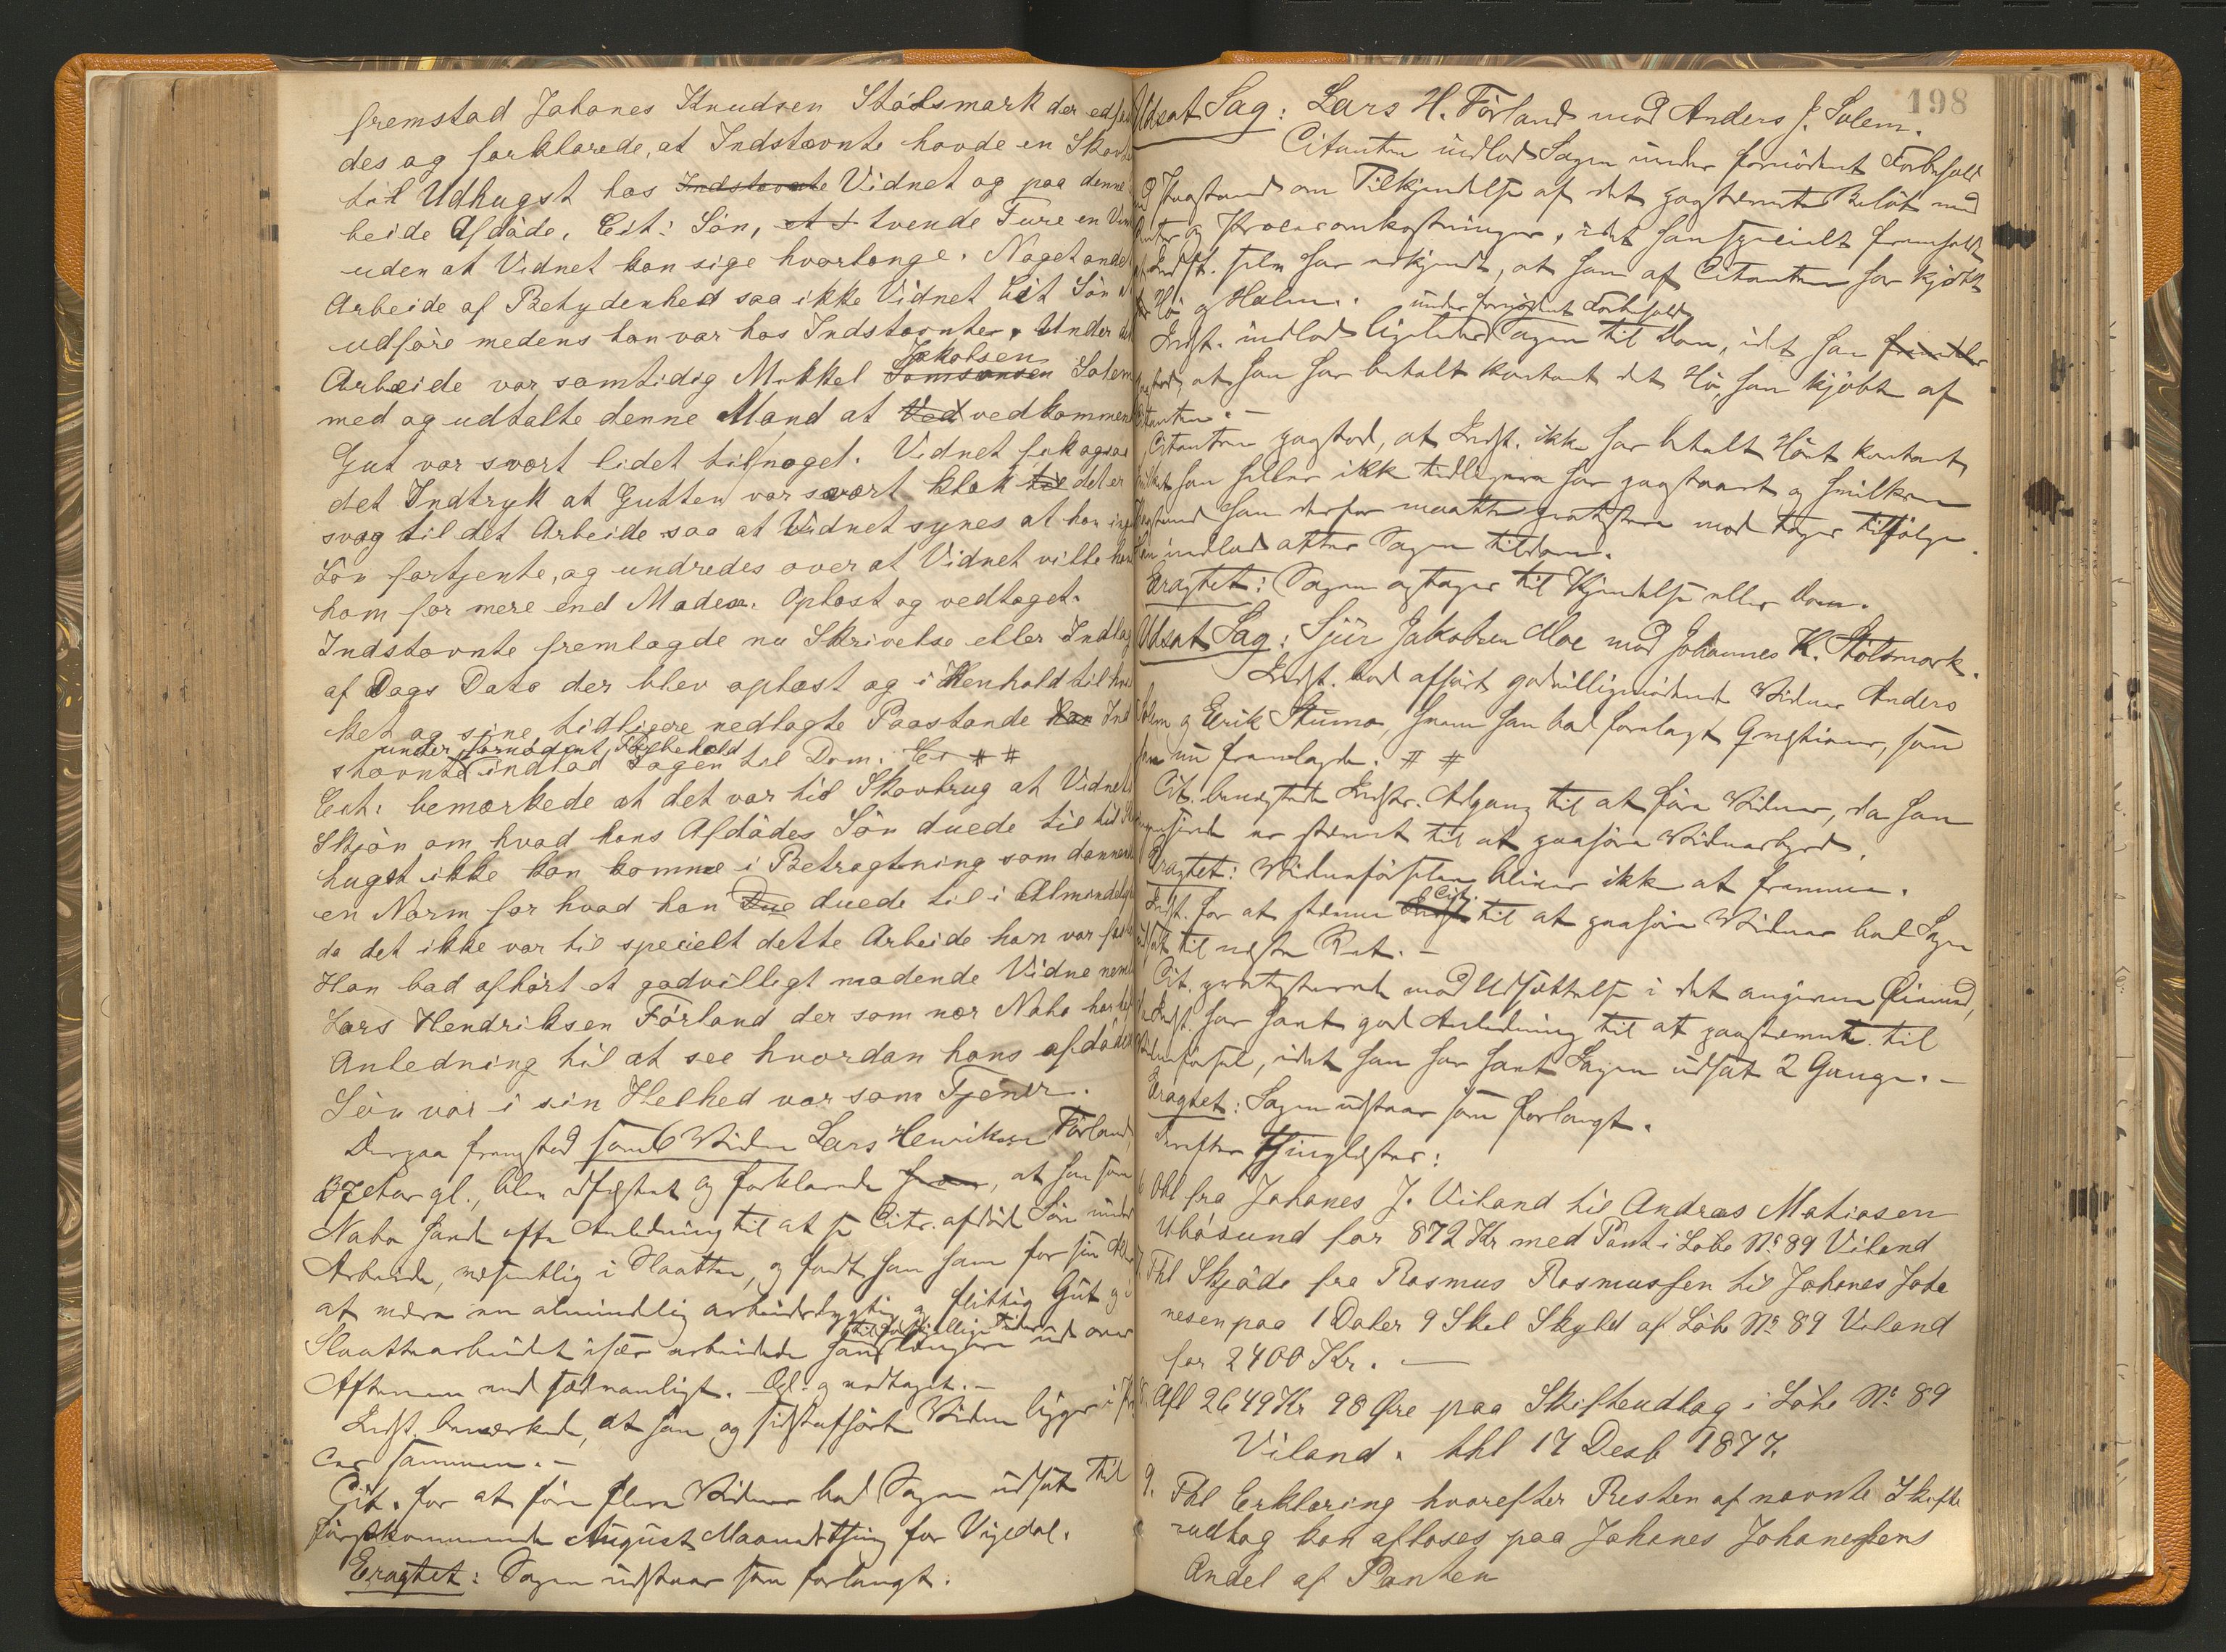 fremstod Johanes Knudsen Stölsmark der edfæ
des og forklarede, at Indstævnte havde en Skov
til Udhugst hos Indstævnte Vidnet og paa denne
beide Afdöde, Cit: Sön, et t tvende Ture en Vin
uden at Vidnet kan sige hvorlænge. Noget andet
Arbeide af Betydenhed saa ikke Vidnet Cit Sön
udföre medens han var hos Indstævnte. Under
Jakobsen
Arbeide var samtidig Mikkel Samsonsen Solem
med og udtalte denne Mand at Ved vedkommen
Gut var svært lidet til noget. Vidnet fik ogsaa
det Indtryk at Gutten var svært klok til det er
svag til det Arbeide saa at Vidnet synes at han
Lön fortjente, og undredes over at Vidnet vilde
ham for mere end Maden. Oplæst og vedtaget.
Indstævnte fremlagde nu Skrivelse eller Indlæg
af Dags Dato der blev oplæst og i Henhold til
ket og sine tidligere nedlagte Paastande Ind
under fornödent Forbehold
stævnte indlod Sagen til Dom. # #
Cit: bemærkede at det var til Skovbrug at Vidnet
Skjön om hvad hans Afdödes Sön duede til
hugst ikke kan komme i Betragtning som dannende
en Norm for hvad han Due duede til i Almindelig
da det ikke var til specielt dette Arbeide han var
Han bad afhört et godvilligt mödende Vidne nem
Lars Hendriksen Förland der som nær Nabo har
Anledning til at see hvordan hans afdöde
Sön var i sin Helhed var som Tjener.
Derpaa fremstod som 6 Vidne Lars Henriksen Förland,
37 Aar gl., blev edfæstet og forklarede, at han som
Nabo havde ofte Anledning til at se Citr. afdöde Sön under
Arbeide, nemlig i Slaatten, og fandt han ham for sin Al
at være en almindelig arbeidsdygtig og flittig Gut
til forskjellige Tider
Slaattearbeidet især arbeidede han længere ud over
Aftenen end sædvanligt. Opl. og vedtaget.
Indst. bemærkede, at han og sidstafhörte Vidne ligger i
ces sammen.
Cit. for at före flere Vidner bad Sagen udsat til
förstkommende August Maanedsthing for Vigedal.
Eragtet: Sagen udstaar som forlangt.
198
Udsat Sag: Lars H. Förland mod Anders J. Solem.
Citanten indlod Sagen under fornödent Forbehold
Paastand om Tilkjendelse af det paastævnte Belöb med
Renter og Procesomkostninger, idet han specielt fremholdt
Indst. selv har erkjendt, at han af Citanten har kjöbt
Hö og Halm.
under fornödent Forbehold
Indst. indlod ligeledes Sagen til Dom, idet han
at han har betalt kontant det Hö, han kjöbt af
Citanten.
Citanten paastod, at Indst. ikke har betalt Höet kontant,
hvilket han heller ikke tidligere har paastaaet og hvilken
Paastand han derfor maatte protestere mod tages tilfölge
indlod atter Sagen til Dom.
Eragtet: Sagen optages til Kjendelse eller Dom.
Udsat Sag: Sjur Jakobsen Moe mod Johannes K. Stölsmark.
Indst. bad afhört godvilligmödende Vidner Anders
Solem og Eerik Stumo hvem han bad forelagt Qvestioner, som
han nu fremlagde. # #
Cit. benegtede Indstr. Adgang til at före Vidner, da han
er stævnt til at paahöre Vidnesbyrd.
Eragtet: Vidneförselen bliver ikke at fremme.
Cit.
Indst. for at stævne Indst. til at paahöre Vidner bad Sagen
udsat til næste Ret.
Cit. protesterede mod Udsættelse i det angivne Öiemed,
Indst. har havt god Anledning til at paastævnte til
Vidneförsel, idet han har havt Sagen udsat 2 Gange.
Eragtet: Sagen udstaar som forlangt.
Derefter thinglæstes:
6 Obl fra Johanes J. Viland til Andreas Mathiasen
Ubösund for 872 Kr med Pant i Löbe No 89 Viland
7. Thl Skjöde fra Rasmus Rasmussen til Johanes Joha
nesen paa 1 Daler 9 Skel Skyld af Löbe No 89 Viland
for 2400 Kr.
8. Afl 2649 Kr 98 Öre paa Skifteudlæg i Löbe No 89
Viland. thl 17 Desb 1877.
9. Thl Erklæring hvorefter Resten af nævnte Skifte
rudlæg kan aflöses paa Johanes Johanessens
Andel af Panten